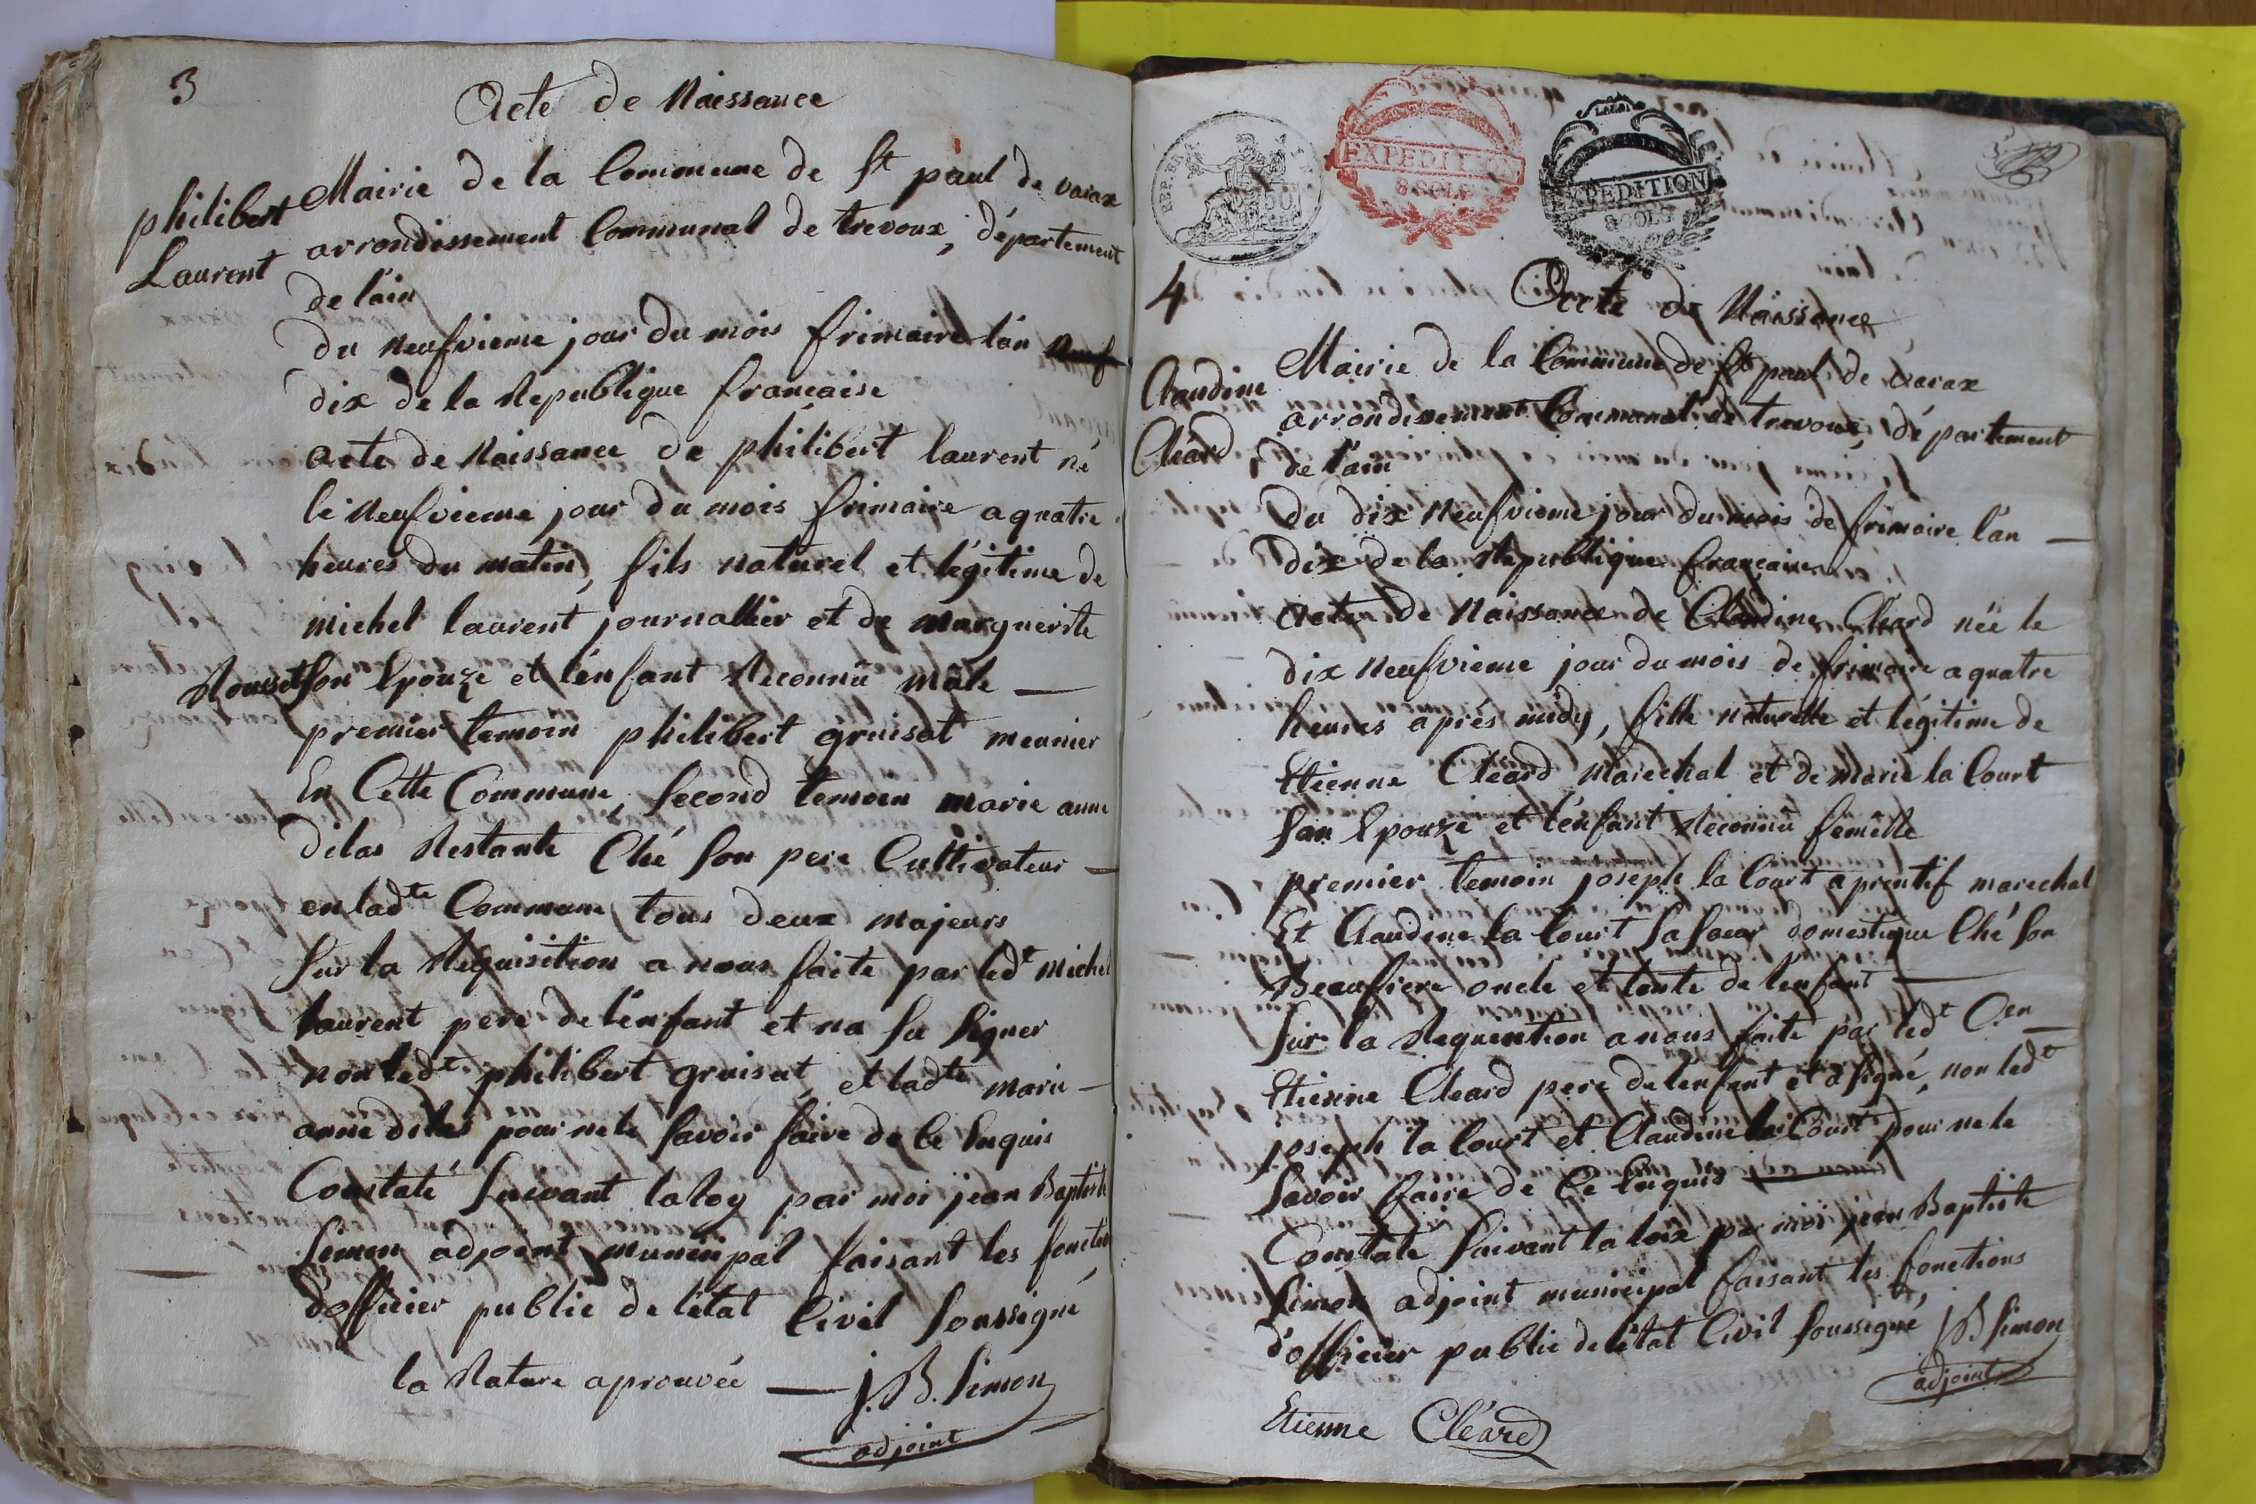 3
Acte de Naissance
philibert
Laurent
Mairie de la Commune de St paul de varax
arrondissement Communal de trevoux, département
de l'ain
du neufvieme jour du mois frimaire l'an neuf
dix de la Republique francaise
acte de Naissance de philibert laurent né
le neufvieme jour du mois frimaire a quatre
heures du matin, fils naturel et légitime de
michel laurent journallier et de marguerite
Rousset son Epouze et l'enfant Reconnû mâle
premier temoin philibert gruisat meunier
En Cette Commune, second temoin marie anne
dilas Restante Ché son pere Cultivateur
en ladte Commune tous deux majeurs
sur la Requisition a nous faite par ledt michel
laurent pere de l'enfant et na su signer
non ledt philibert gruisat, et ladte marie
anne dilas pour ne le savoir faire de ce Enquis
Constaté suivant la loy par moi jean Baptiste
simon adjoint municipal faisant les fonction
d'officier public de l'état Civil soussigné
la Rature aprouvée J.B. Simon
adjoint
REP. FR.
50
EXPEDITION
8 SOLS
LA LOI
EXPEDITION
8 SOLS
4
Acte de Naissance
Claudine
Cléard
Mairie de la Commune de St paul de varax
arrondissement Communal de trevoux, département
de l'ain
du dix neufvieme jour du mois de frimaire l'an
dix de la Republique francaise
acte de Naissance de Claudine Cléard née le
dix neufvieme jour du mois de frimaire a quatre
heures après midy, fille naturelle et légitime de
Etienne Cléard marechal et de marie la Court
san Epouze et l'enfant Reconnû femelle
premier temoin joseph la Court aprentif marechal
Et Claudine la Court sa soeur domestique Ché son
Beaufrere oncle et tante de l'enfant
sur la Requention a nous faite par ledt Cen
Etienne Cleard pere de l'enfant et a signé, non ledt
joseph la Court et Claudine la Court pour ne le
savoir faire de Ce Enquis
Constaté suivant la loix par moi jean Baptiste
simon adjoint municipal faisant les fonctions
d'officier public de l'état Civil soussigné J B Simon
adjoint
Etienne Cléard